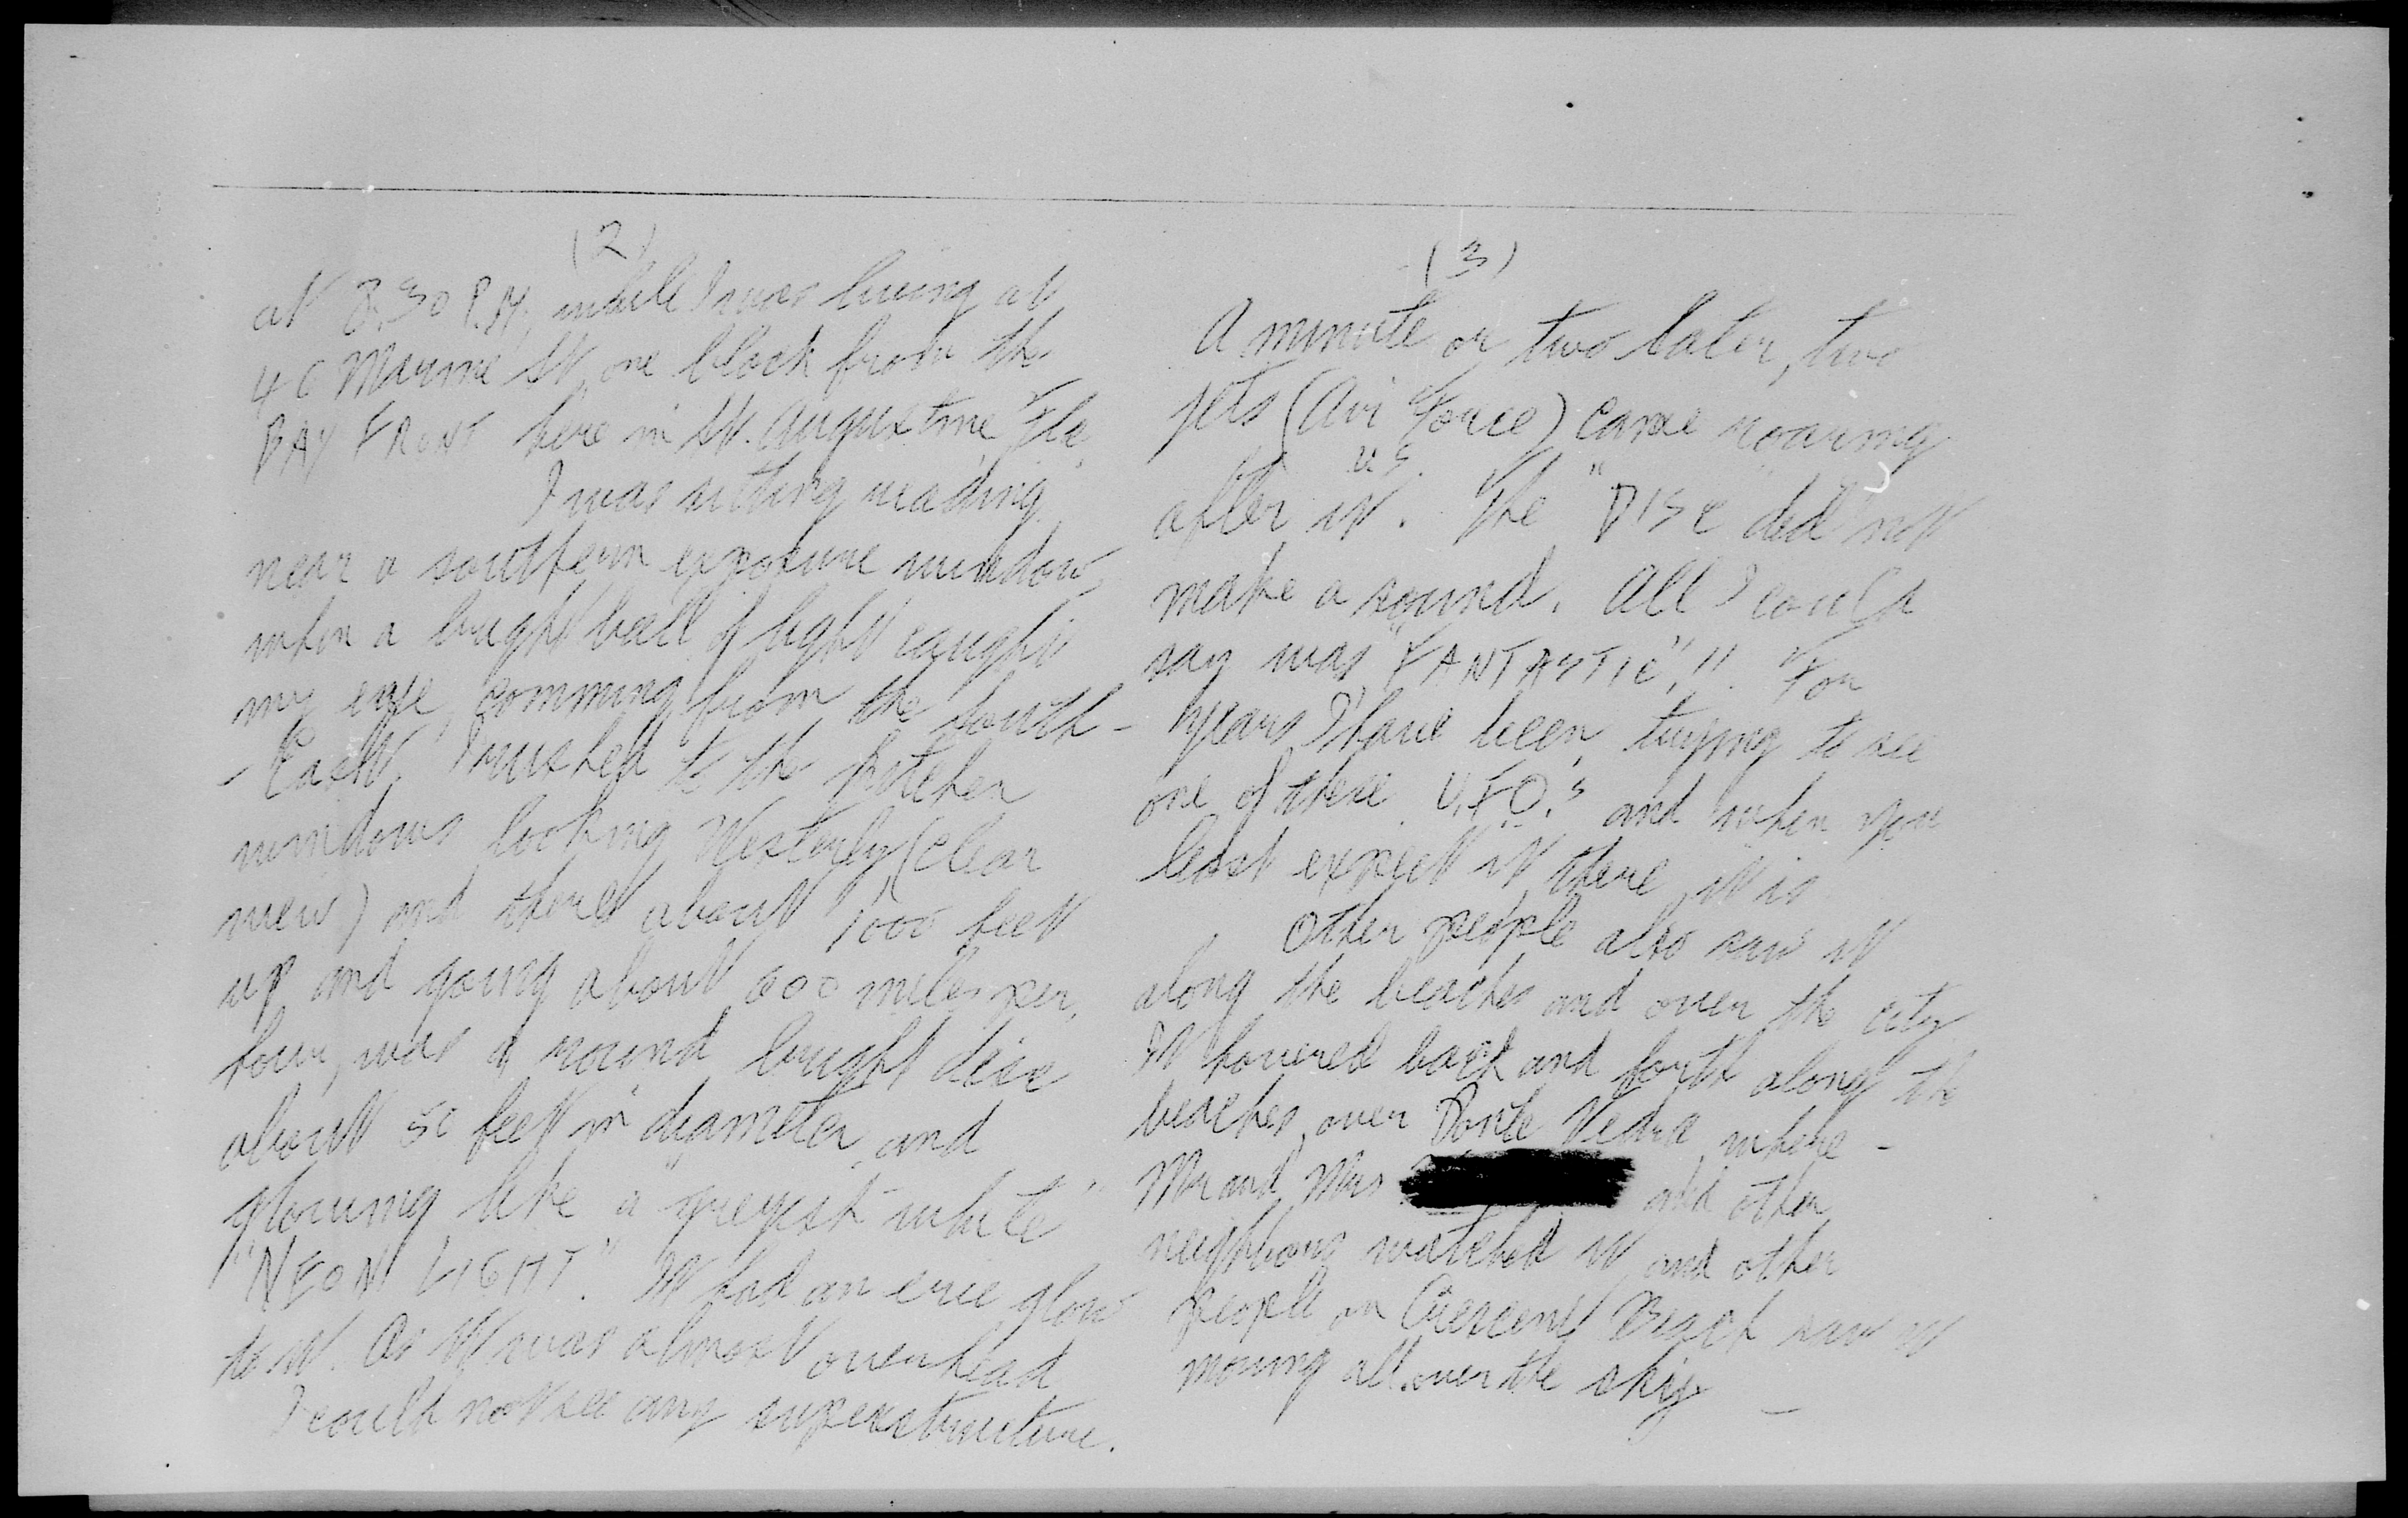 (2)
at 8:30 P.M. while I was living at
46 Marine St, one block from the
BAY FRONT here in St. Augustine, Fla.
I was sitting reading
near a southern exposure window,
when a bright ball of light caught
my eye, comming from the South-
- East. I rushed to the kitchen
windows looking Westerly, (clear
view) and there about 1000 feet
up and going about 600 miles per.
hour, was a round bright disc
about 50 feet in diameter, and
glowing like a "greyish-white"
"NEON LIGHT". It had an erie glow
to it. As it was almost overhead
I could not see any superstructure.
(3)
A minute or two later, two
jets (Air Force) came roaring
U.S.
after it. The "DISC" did not
make a sound. All I could
say was, "FANTASTIC"!! For
years I have been trying to see
one of these U.F.O.'s and when you
least expect it, there it is.
Other people also saw it
along the beaches and over the city
It hovered back and forth along the
beaches, over Ponte Vedra where -
Mr and Mrs and other
neighbors watched it, and other
people on Crescent Beach saw it
moving all over the sky -